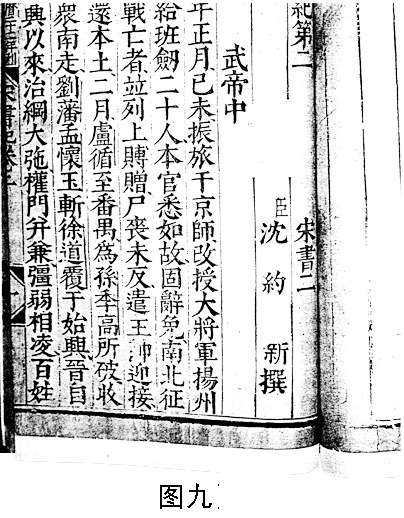 紀第二 宋書二
臣沈約 新撰
武帝中
年正月己未振旅于京師改授大將軍揚州
給班劔二十人本官悉如故固辭免南北征
戰亡者並列上賻贈尸喪未反遣王帥迎接
還本土二月盧循至番禺為孫季高所破收
衆南走劉藩孟懷玉斬徐道覆于始興晉自
興以來治綱大弛權門并兼彊弱相凌百姓
宋書卷二
一
图九